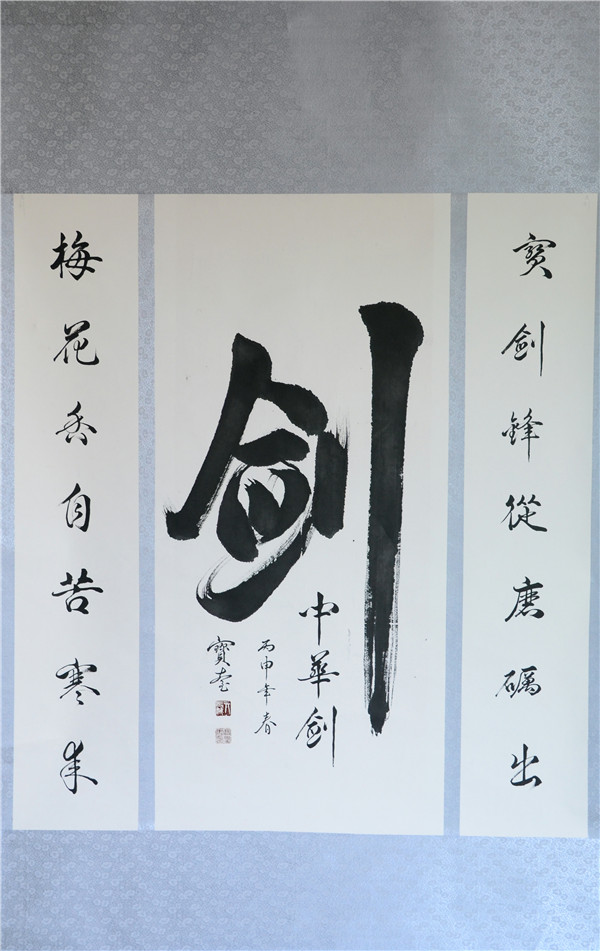 寶劍鋒從磨礪出
劍
中華劍
丙申年春
寶奎
梅花香自苦寒來